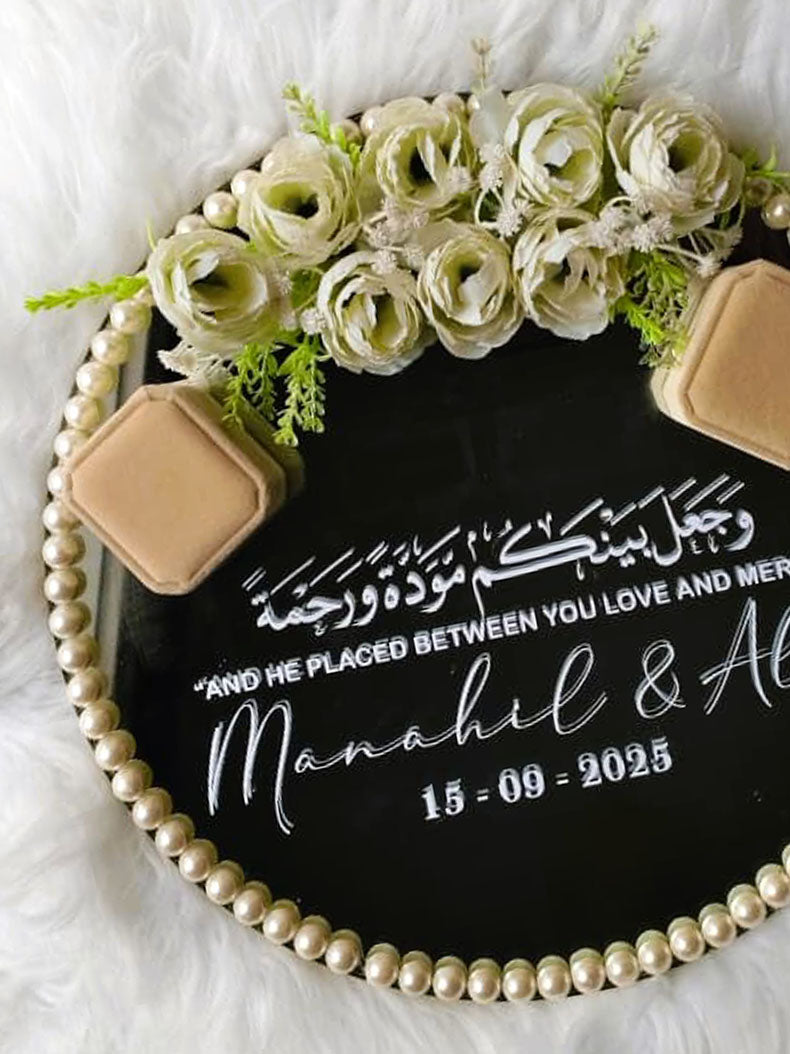 وَجَعَلَ بَيْنَكُم مَّوَدَّةً وَرَحْمَةً
"AND HE PLACED BETWEEN YOU LOVE AND MER
Manahil & Al
15 - 09 - 2025